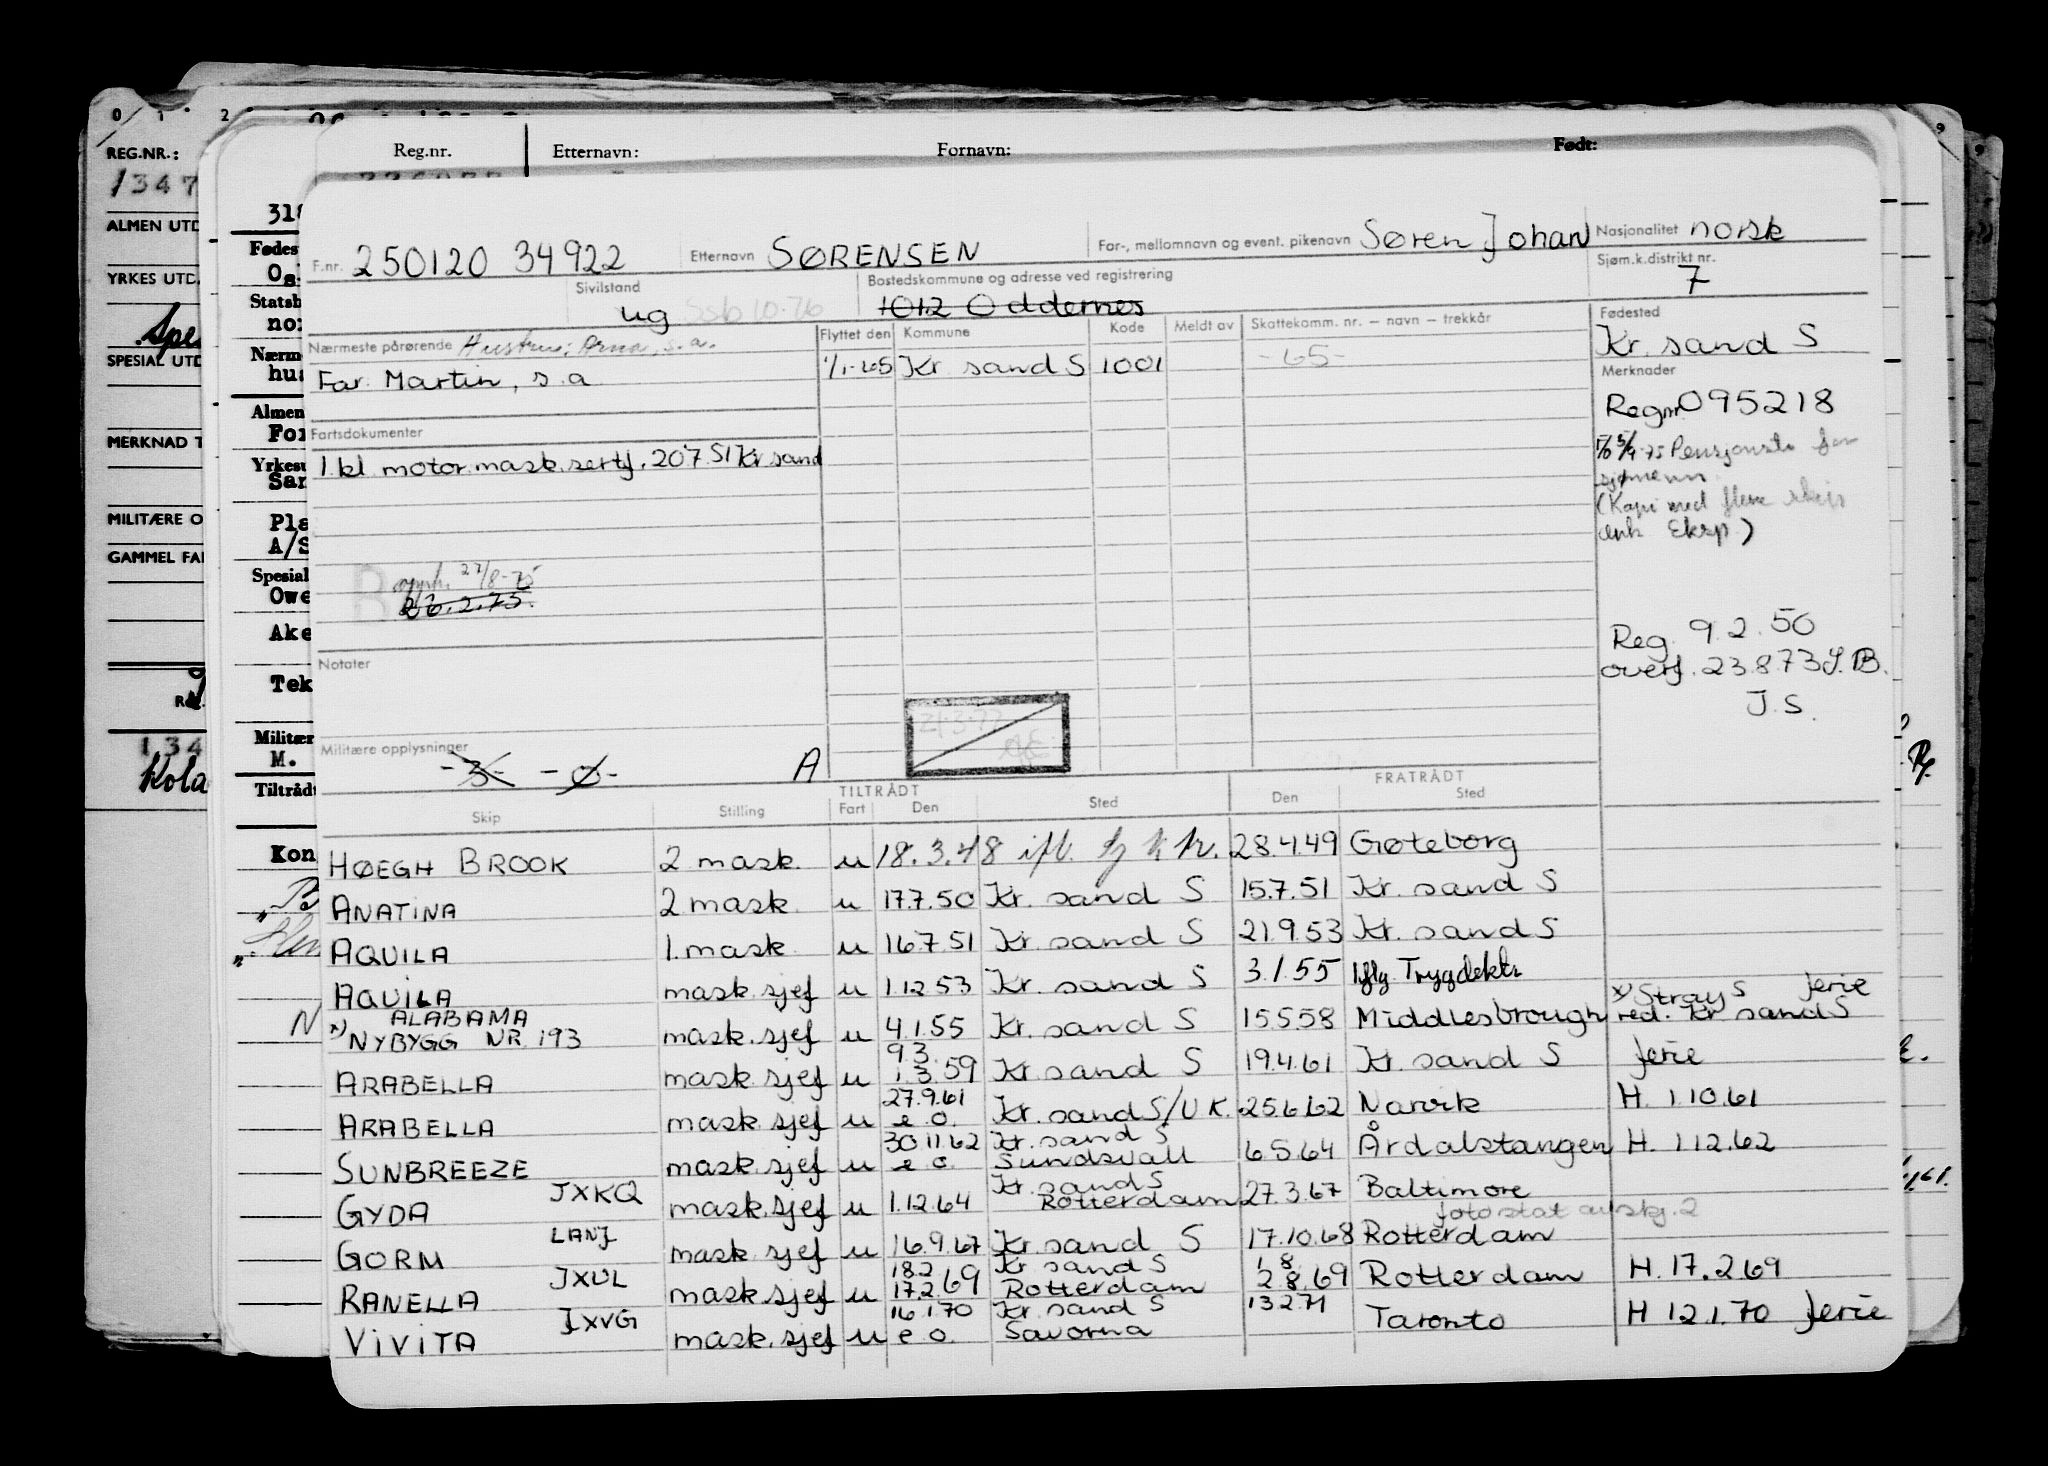 0 1 2 9
REG.NR.:
1347
ALMEN UTD
YRKES UTD.
Spe
SPESIAL UTD
MERKNAD T
MILITÆRE O
GAMMEL FAR
134
Kola
318
Fødes
Os
Statsb
nor
Nærm
hus
Almen
For
Yrkesu
Sar
Pla
A/S
Spesial
Owe
Ake
Tek
Militær
M.
Tiltrådt
Kon
Reg.nr. Etternavn: Fornavn: Født:
F.nr. 250120 34922 Etternavn SØRENSEN For-, mellomnavn og event. pikenavn Søren Johan Nasjonalitet norsk
Sivilstand ug Ssb 10-76 Bostedskommune og adresse ved registrering 1012 Oddernes Sjøm.k.distrikt nr. 7
Nærmeste pårørende Hustru: Arna, s.a. Flyttet den Kommune Kode Meldt av Skattekomm. nr. – navn – trekkår Fødested
Far: Martin, s.a 1/1-65 Kr. sand S 1001 -65- Kr. sand S
Merknader
Regnr 095218
Fartsdokumenter
1. kl. motor.mask.sertf. 20.7.51 Kr sand
5/9-75 Pensjonstr for
sjømenn
(Kopi med flere skip
Enk Eksp.)
B opph. 27/8-75
26.2.75.
Reg. 9.2.50
overf. 23.8.73 S.B.
J.S.
Notater
21-3-77
Militære opplysninger -3- -Ø- A
TILTRÅDT FRATRÅDT
Skip Stilling Fart Den Sted Den Sted
HØEGH BROOK 2 mask. u 18.3.48 ifl. 28.4.49 Gøteborg
ANATINA 2 mask. u 17.7.50 Kr. sand S 15.7.51 Kr. sand S
AQUILA 1. mask. u 16.7.51 Kr. sand S 21.9.53 Kr. sand S
AQUILA mask.sjef u 1.12.53 Kr. sand S 3.1.55 iflg. Trygdektr
ALABAMA x) Strays ferie
x) NYBYGG NR. 193 mask.sjef u 4.1.55 Kr. sand S 15.5.58 Middlesbrough red. Kr sand S
9.3.
ARABELLA mask.sjef u 1.3.59 Kr sand S 19.4.61 Kr. sand S ferie
27.9.61
ARABELLA mask.sjef u e.o. Kr. sand S/U K. 25.6.62 Narvik H. 1.10.61
30.11.62 Kr. sand S
SUNBREEZE mask.sjef u e.o. Sundsvall 6.5.64 Årdalstangen H. 1.12.62
Kr. sand S
GYDA JXKQ mask.sjef u 1.12.64 Rotterdam 27.3.67 Baltimore
fotostat avskj. 2
GORM LANJ mask.sjef u 16.9.67 Kr. sand S 17.10.68 Rotterdam
18.2 Kr sand S 1 8
RANELLA JXUL mask.sjef u 17.2.69 Rotterdam 2.8.69 Rotterdam H. 17.2.69
16.1.70 Kr. sand S 13.2.71
VIVITA JXVG mask.sjef u e.o. Savona Taronto H 12.1.70 ferie